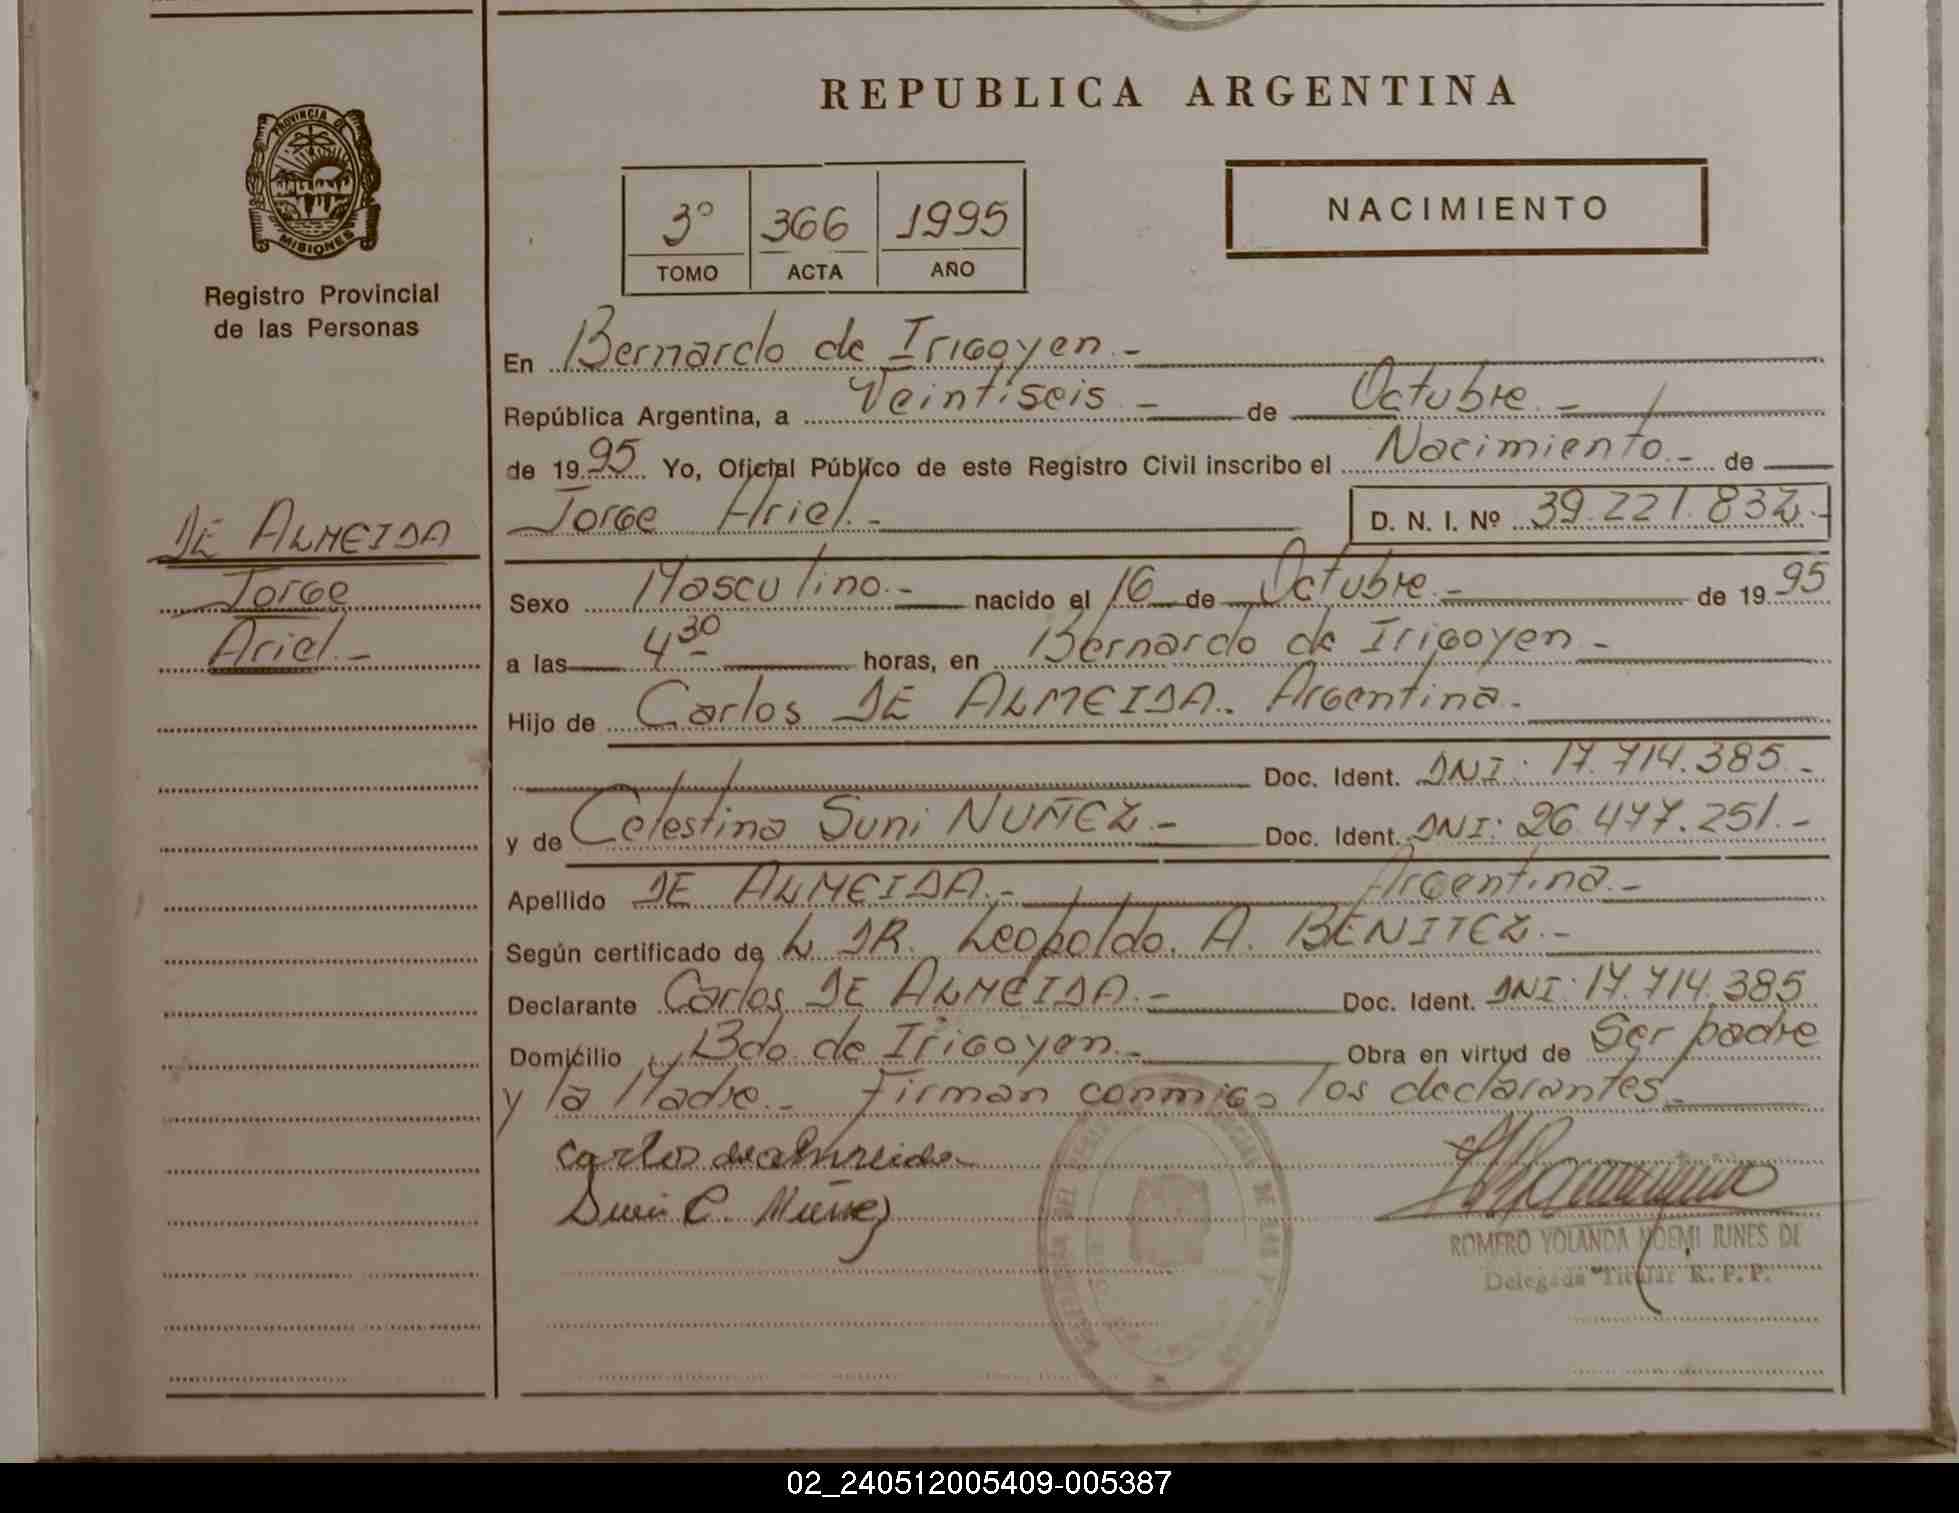 REPUBLICA ARGENTINA
PROVINCIA DE
MISIONES
Registro Provincial
de las Personas
3º 366 1995
TOMO ACTA AÑO
NACIMIENTO
En Bernardo de Irigoyen.-
República Argentina, a Veintiseis.- de Octubre.-
de 1995 Yo, Oficial Público de este Registro Civil inscribo el Nacimiento.- de
Jorge Ariel.- D. N. I. Nº 39.221.832.-
DE ALMEIDA
Jorge
Ariel.-
Sexo Masculino.- nacido el 16 de Octubre.- de 1995
a las 4 30 horas, en Bernardo de Irigoyen.-
Hijo de Carlos DE ALMEIDA. Argentina.-
Doc. Ident. DNI: 17.714.385.-
y de Celestina Suni NUÑEZ.- Doc. Ident. DNI: 26.477.251.-
Apellido DE ALMEIDA.- Argentina.-
Según certificado de L DR. Leopoldo. A. BENITEZ.-
Declarante Carlos DE ALMEIDA.- Doc. Ident. DNI: 17.714.385
Domicilio Bdo. de Irigoyen.- Obra en virtud de Ser padre
y la Madre.- Firman conmigo los declarantes.-
Carlos de Almeida
Suni C. Nuñez
ROMERO YOLANDA NOEMI JUNES DE
Delegada Titular R. P. P.
02_240512005409-005387